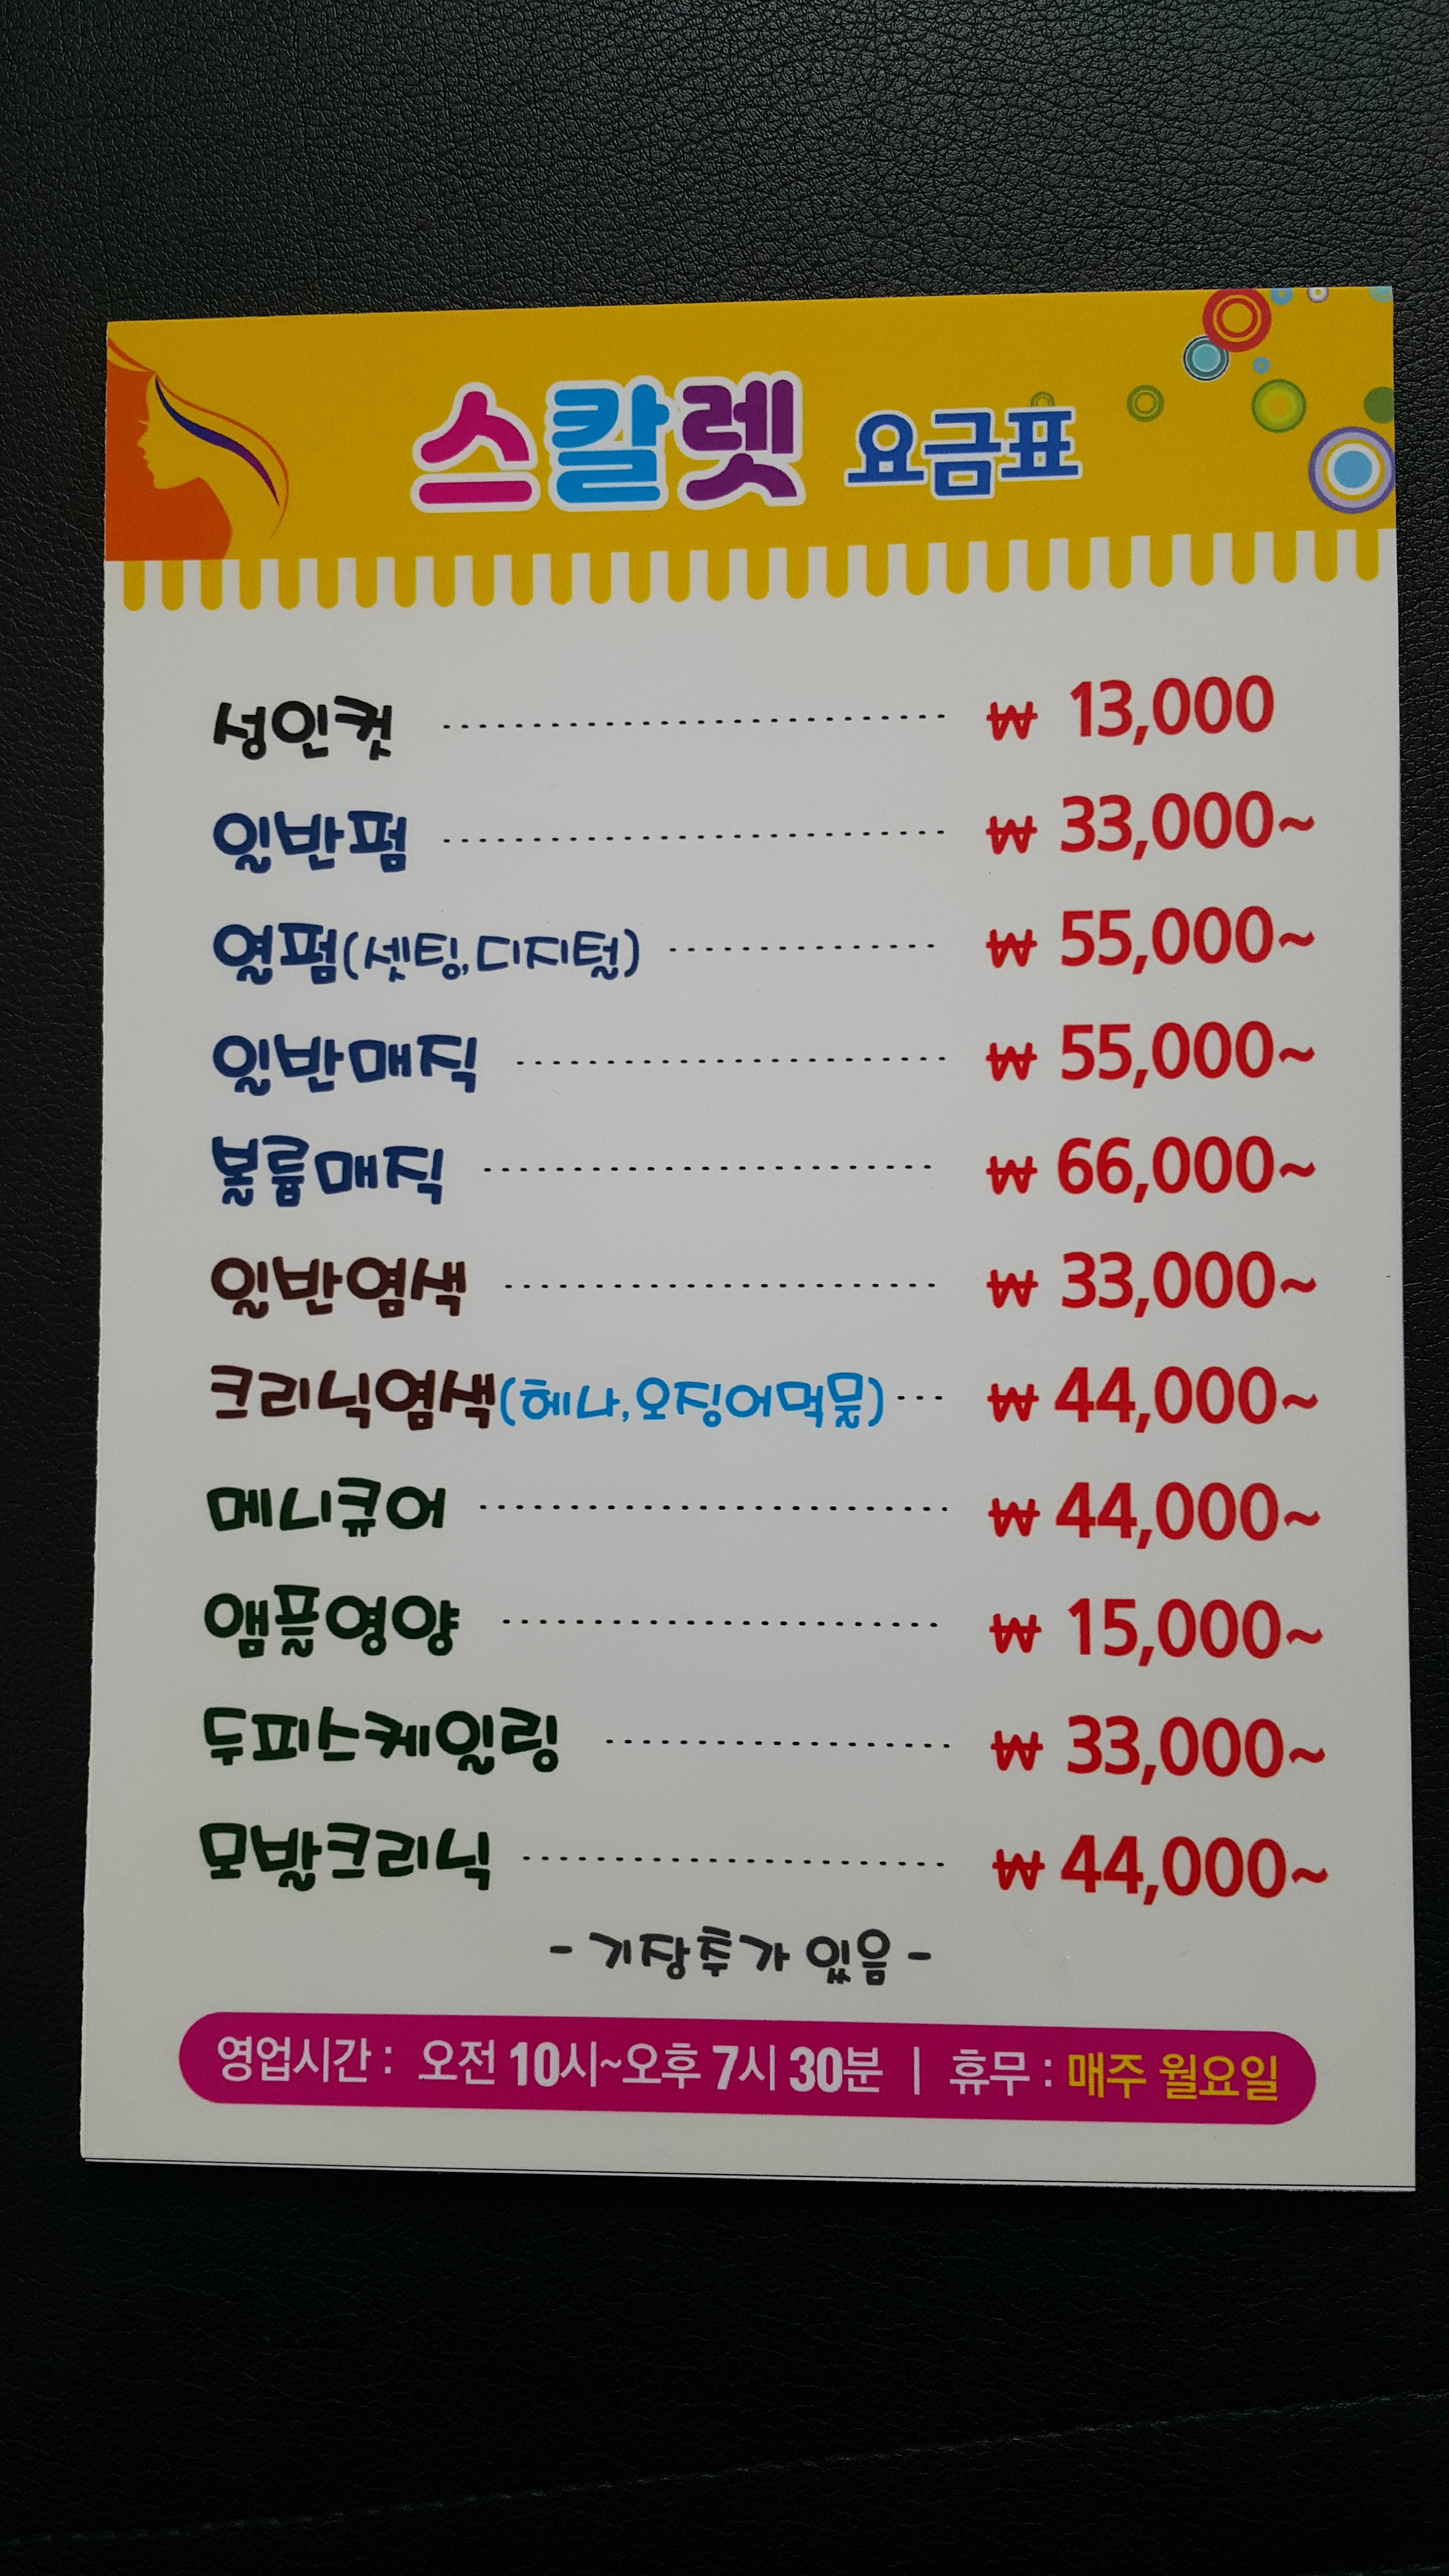 스칼렛 요금표
성인컷 ₩ 13,000
일반펌 ₩ 33,000~
열펌(셋팅,디지털) ₩ 55,000~
일반매직 ₩ 55,000~
볼륨매직 ₩ 66,000~
일반염색 ₩ 33,000~
크리닉염색(헤나,오징어먹물) ₩ 44,000~
메니큐어 ₩ 44,000~
앰플영양 ₩ 15,000~
두피스케일링 ₩ 33,000~
모발크리닉 ₩ 44,000~
- 기장추가 있음 -
영업시간 : 오전 10시~오후 7시 30분 | 휴무 : 매주 월요일